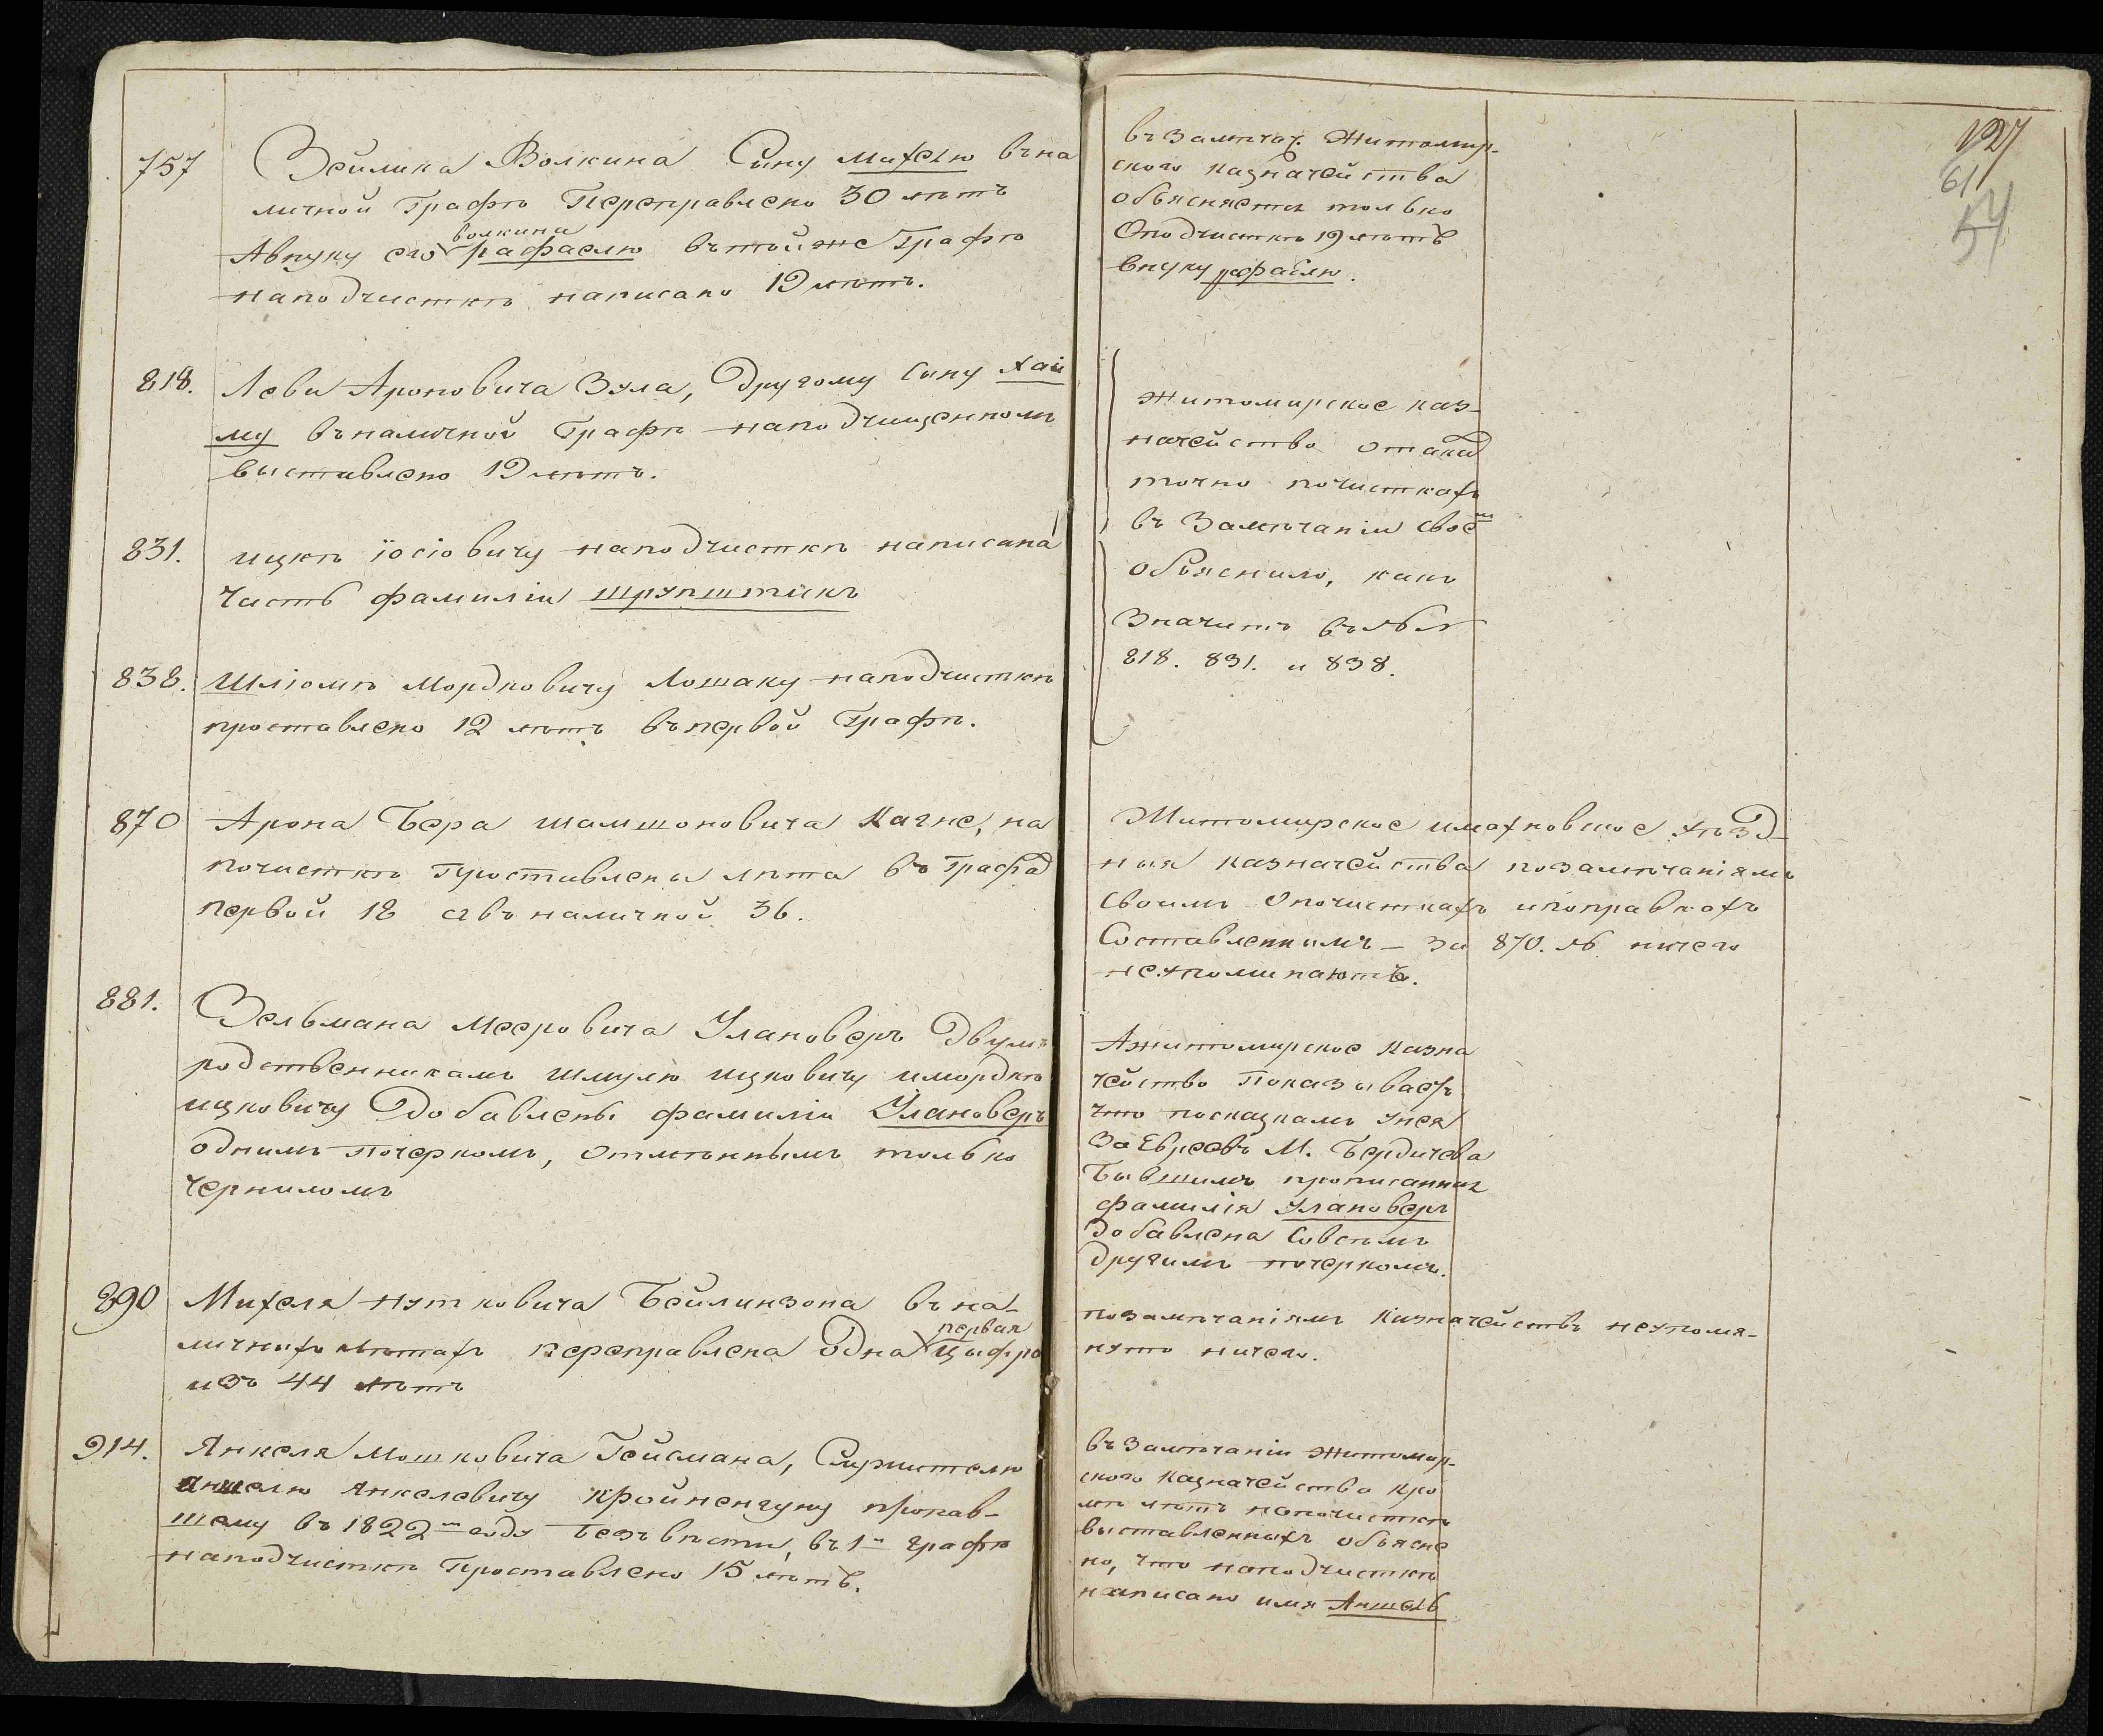 757
Зейлика Волкина Сыну Михелю въ на
личной Графѣ Переправлено 30 лѣтъ
Авнуку его волкина рафаелю въ тойже Графѣ
на подчисткѣ написано 19 лѣтъ.
818.
Леви Ароновича Зула, Другому Сыну Хаи
му въ наличной Графѣ на подчищенномъ
выставлено 19 лѣтъ.
831.
ицкѣ іосіовичу на подчисткѣ написана
часть фамиліи
838.
Шліомѣ Мордковичу Лошаку на подчисткѣ
проставлено 12 лѣтъ въ первой Графѣ.
870
Арона Бера шамшоновича Кагне, на
почисткѣ Проставлены лѣта въ Графѣ
первой 18 а въ наличной 36.
881.
Зельмана Мееровича Улановеръ Двумъ
родственникамъ шмулю ицковичу и мордкѣ
ицковичу Добавлены фамиліи Улановеръ
однимъ почеркомъ, отмѣннымъ только
черниломъ
890
Михеля нутковича Бейлинзона въ на-
личныхъ лѣтахъ переправлена одна первая цыфра
изъ 44 лѣтъ
914.
Янкеля Мошковича Гейсмана,
аншелю Янкелевичу пропав-
шему въ 1822м году безъ вѣсти, въ 1й графѣ
на подчисткѣ Проставлено 15 лѣтъ.
127
61
54
въ Замѣчаъ. Житомир-
скаго казначейства
объясняется только
О подчисткѣ 19 лѣтъ
внуку рафаелю.
житомирское каз-
начейство
точно почисткахъ
въ Замѣчаніи своем
объяснило, какъ
значитъ въ №№
818. 831. и 838.
Житомирское и махновское уѣзд-
ныя казначейства по замѣчаніямъ
своимъ о почисткахъ и поправкахъ
Составленнымъ - за 870. № ничего
не упоминаютъ.
А житомирское Казна
чейство Показываетъ
что по сказкамъ унея
За Евреевъ М. Бердичева
Бывшимъ прописанная
фамилія Улановеръ
Добавлена совсѣмъ
другимъ почеркомъ.
по замѣчаніямъ Казначействъ не упомя-
нуто ничего.
въ Замѣчаніи житомир-
скаго казначейства кро
мѣ лѣтъ на почисткѣ
выставленныхъ объясне
но, что на подчисткѣ
написано имя Аншель